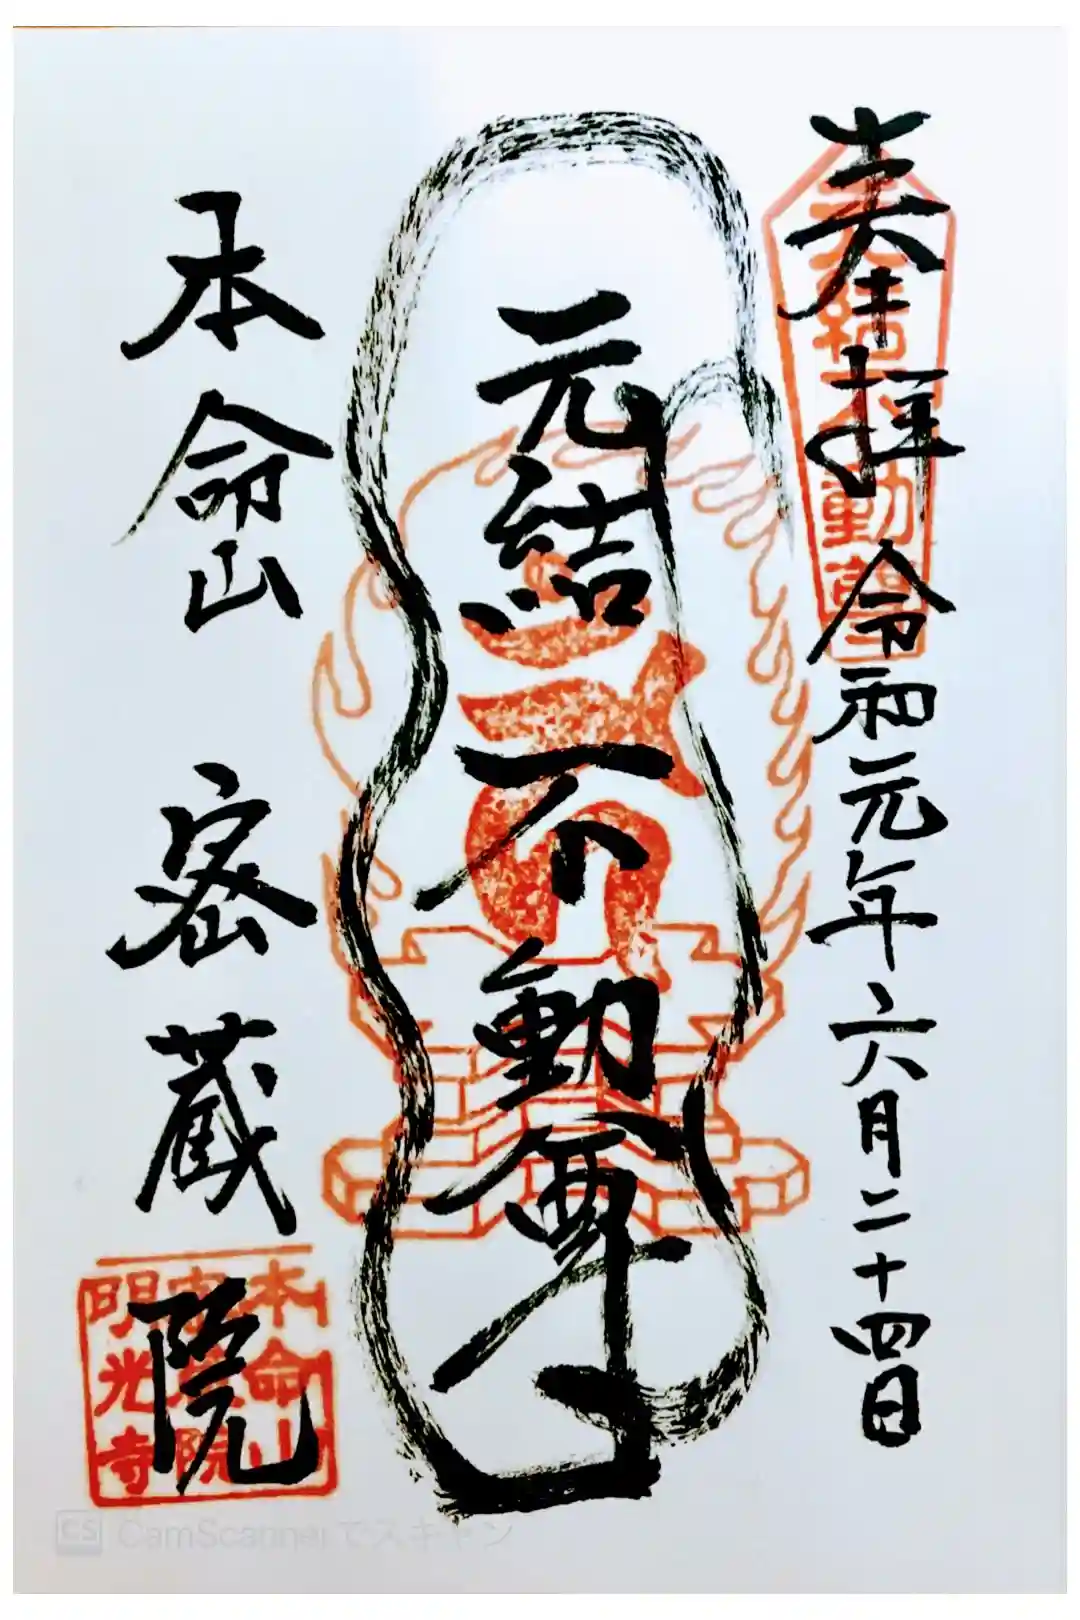 奉拝 令和元年六月二十四日
元結不動尊
本命山 密蔵院
元結不動尊
本命山
密蔵院
明光寺
CS CamScannerでスキャン